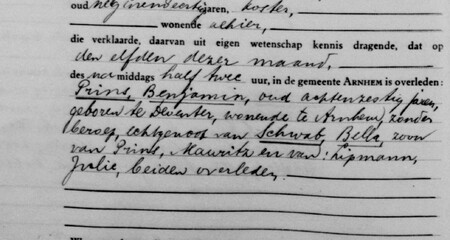 oud negenendertig jaren, koster,
wonende alhier,
die verklaarde, daarvan uit eigen wetenschap kennis dragende, dat op
den elfden dezer maand,
des na middags half twee uur, in de gemeente ARNHEM is overleden:
Prins, Benjamin, oud achtenzestig jaren,
geboren te Deventer, wonende te Arnhem, zonder
beroep, echtgenoot van Schwab, Bella, zoon
van Prins, Mauritz en van: Lipmann,
Julie, beiden overleden,